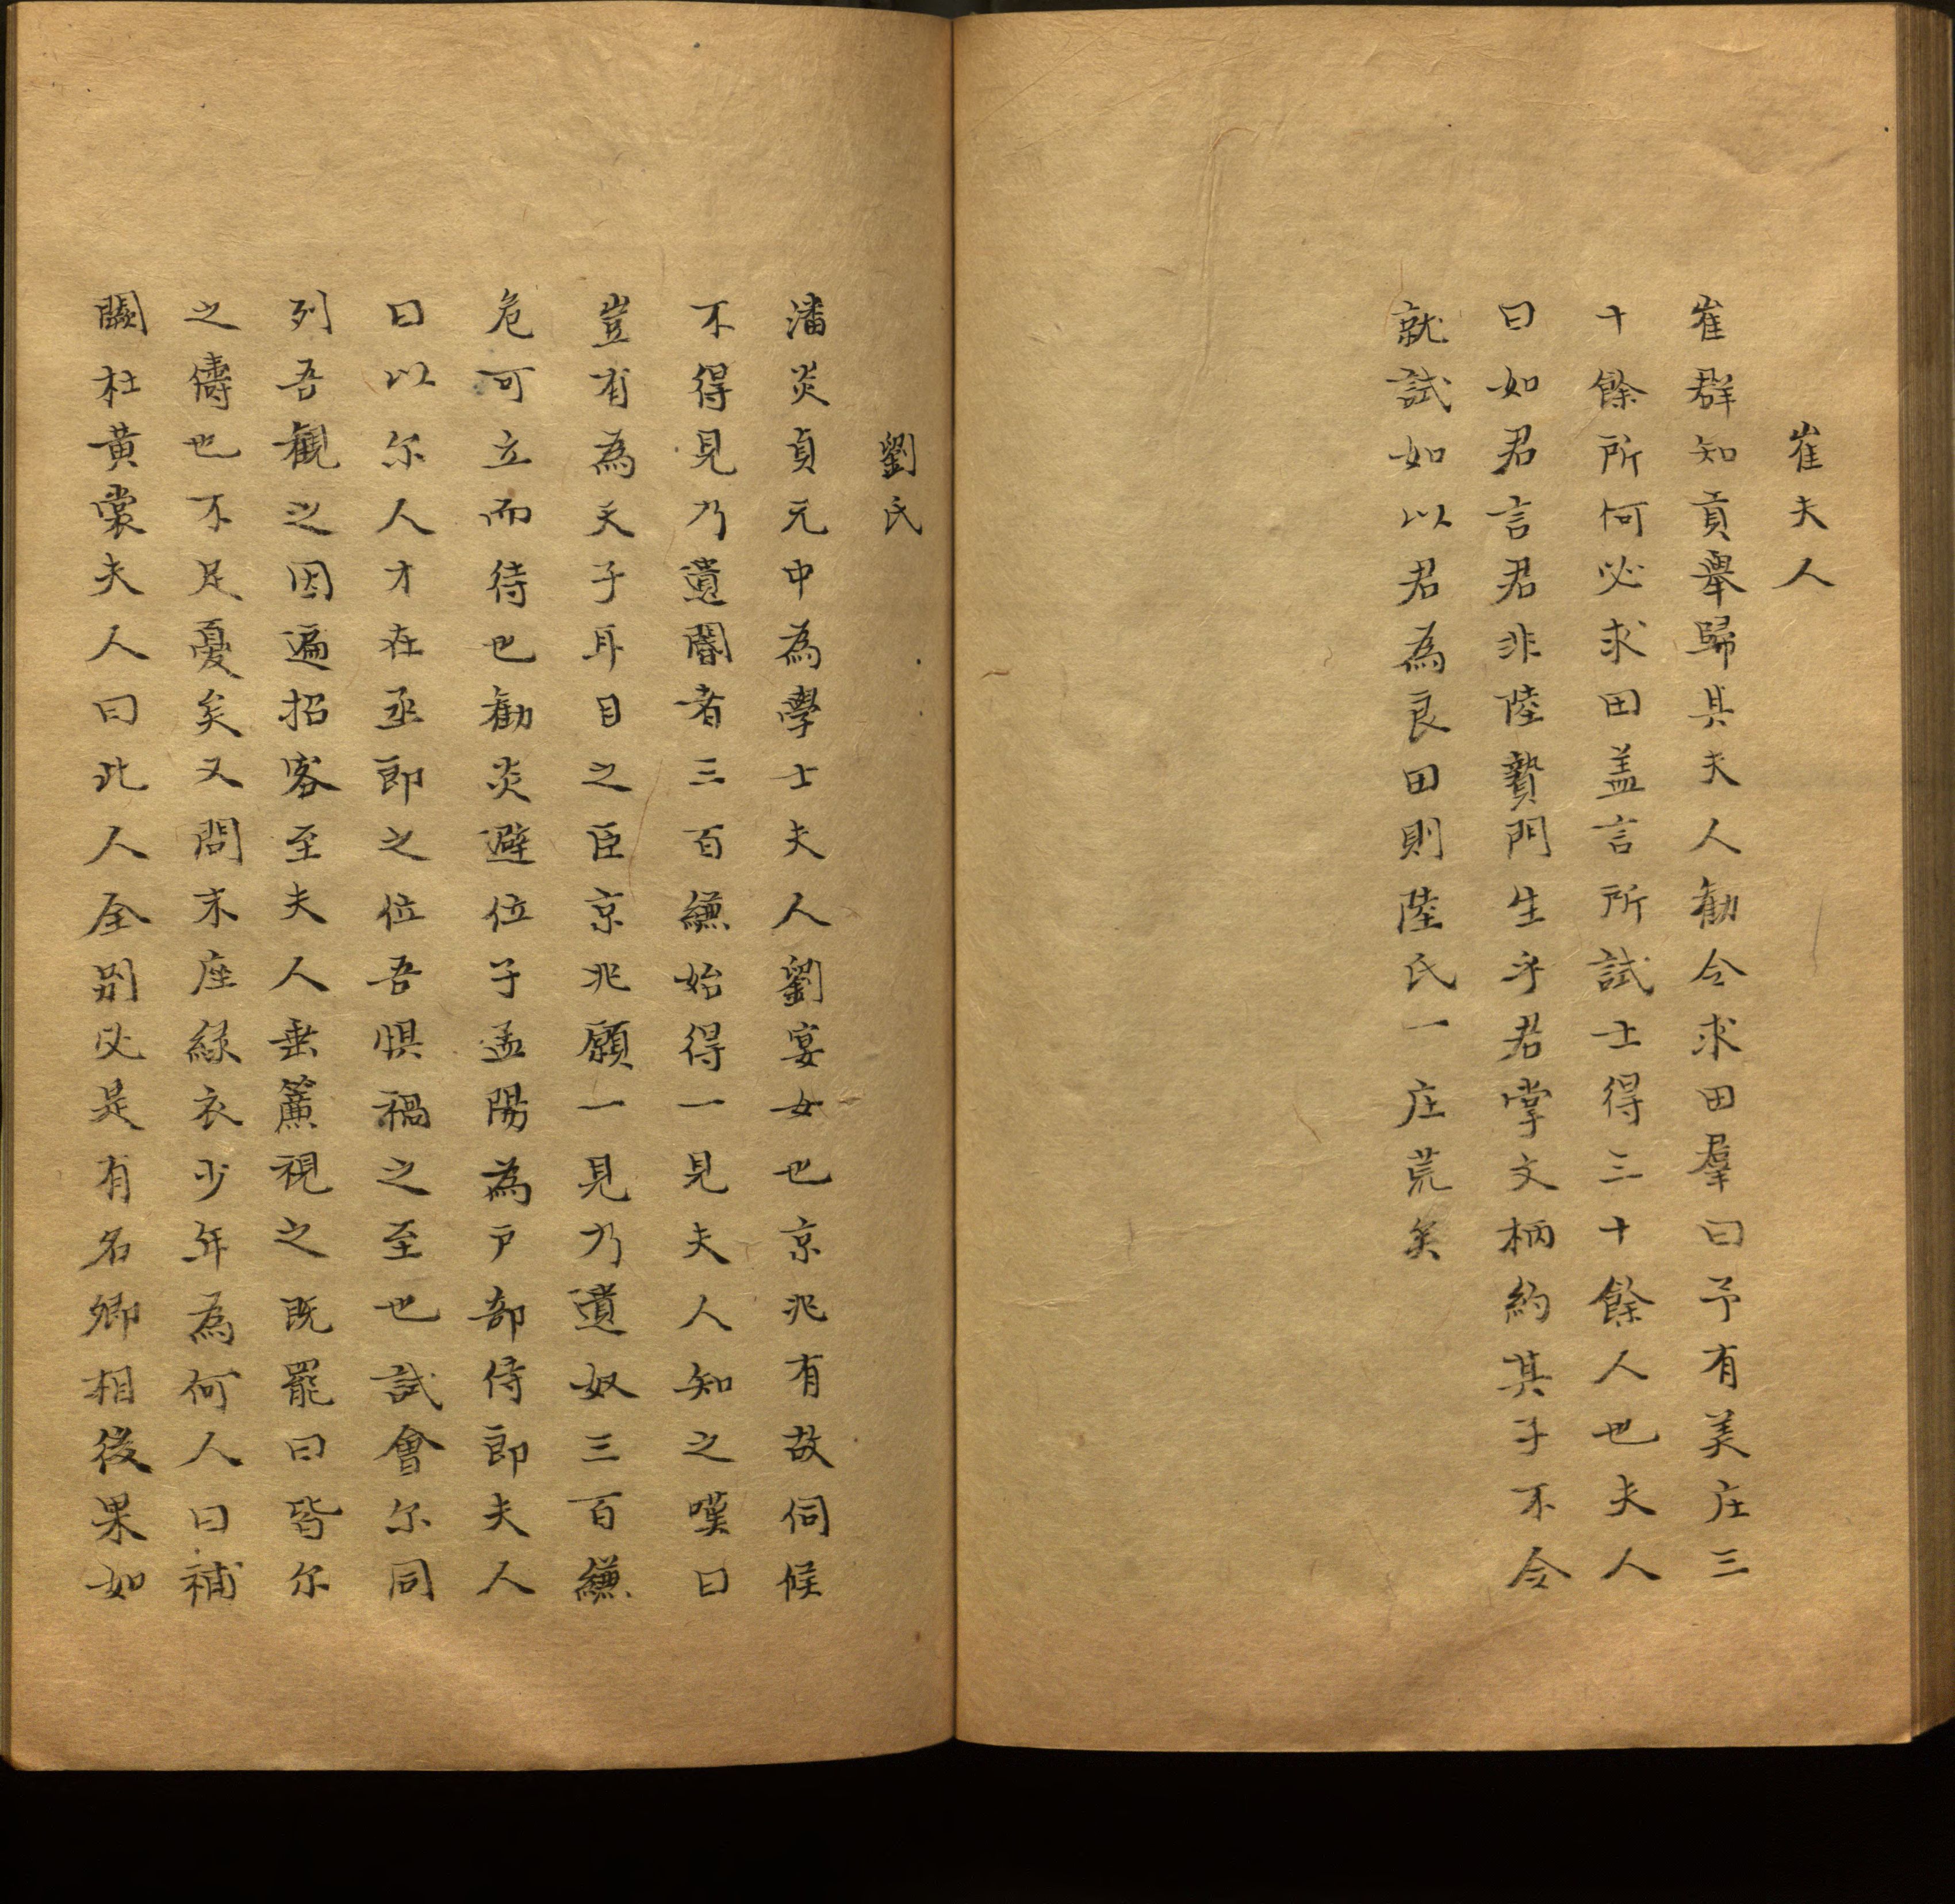 崔夫人
崔群知貢舉歸其夫人勸令求田羣曰予有美庄三
十餘所何必求田盖言所試士得三十餘人也夫人
曰如君言君非陸贄門生乎君掌文柄約其子不令
就試如以君為良田則陸氏一庄荒矣
劉氏
潘炎貞元中為學士夫人劉宴女也京兆有故伺候
不得見乃遺閽者三百縑始得一見夫人知之嘆曰
豈有為天子耳目之臣京兆願一見乃遺奴三百縑
危可立而待也勸炎避位子孟陽為戸部侍郎夫人
曰以尔人才在丞郎之位吾惧禍之至也試會尔同
列吾観之因遍招客至夫人垂簾視之既罷曰皆尔
之儔也不足憂矣又問末座緑衣少年為何人曰補
闕杜黄裳夫人曰此人全别必是有名卿相後果如